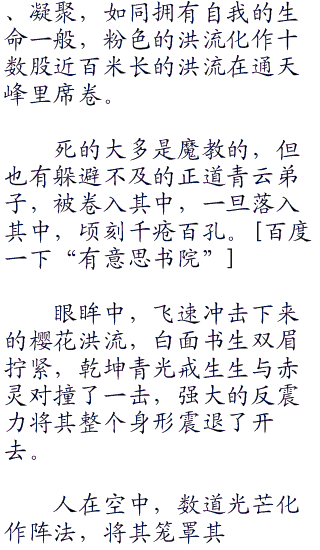 、凝聚，如同拥有自我的生
命一般，粉色的洪流化作十
数股近百米长的洪流在通天
峰里席卷。
死的大多是魔教的，但
也有躲避不及的正道青云弟
子，被卷入其中，一旦落入
其中，顷刻千疮百孔。[百度
一下“有意思书院”]
眼眸中，飞速冲击下来
的樱花洪流，白面书生双眉
拧紧，乾坤青光戒生生与赤
灵对撞了一击，强大的反震
力将其整个身形震退了开
去。
人在空中，数道光芒化
作阵法，将其笼罩其